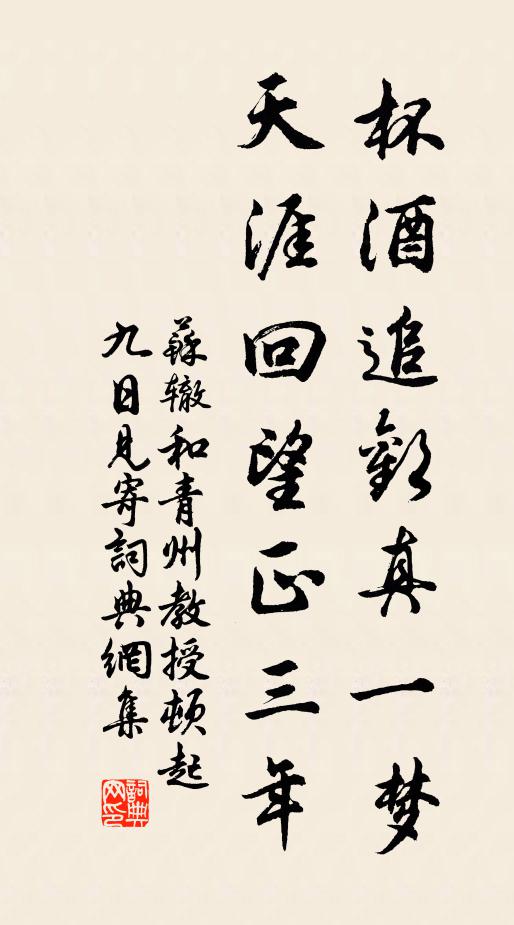 杯酒追歡真一梦
天涯回望正三年
蘇辙和青州教授頓起
九日見寄詞典網集
詞典网印